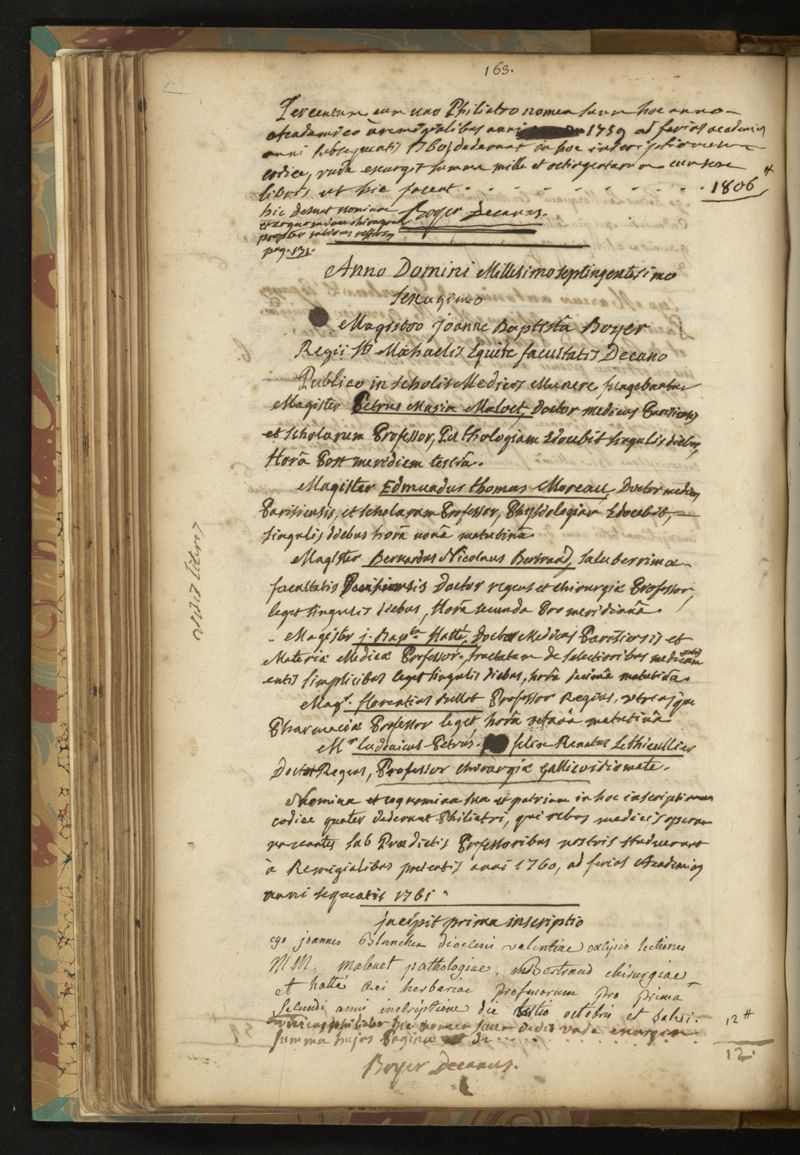 163.
Tercentum cum uno Philiatro nomen suum hoc anno
academico à remigialibus anni 1759 ad ferias academicas
anni subsequentis 1760 dederunt in hoc inscriptionum
codice, unde exurgit summa mille et octingentarum cum sex
libris ut hic jacent . . . . . . . . 1806 ₶
hic desunt nomina
chirurgiæ
propter
pag. 131.
Boyer Decanus.
Anno Domini Millesimo septingentesimo
sexagimo
Magistro joanne Baptistâ Boyer
Regii Sti Michaelis Equite facultatis Decano
Publico in scholis Medicis Munere fungebantur
Magister Petrus Maria Maloet, Doctor medicus Parisiensis
et scholarum Professor, Pathologiam Edocebit singulis diebus,
Horâ Post meridiem tertiâ.
Magister Edmundus thomas Moreau, Doctor medicus
Parisiensis, et scholarum Professor, Physiologiam Edocebit,
singulis diebus horâ nonâ matutinâ.
Magister Bernardus Nicolaus Bertrand, saluberrimæ
facultatis Parisiensis Doctor regens et chirurgiæ Professor,
leget singulis diebus, Horâ secundâ Pomeridianâ.
Magister j. Bapta. Hatté, Doctor Medicus Parisiensis et
Materiæ Medicæ Professor. tractatum de selectioribus medicam
entis simplicibus leget singulis diebus, horâ decimâ matutinâ.
Magr. florentius Bellot Professor Regius, utriusque
Pharmaciæ Professor leget horâ matutinâ
Mr. ludovicus Petrus felix Renatus Lethieullier
Doctor Regens, Professor chirurgiæ gallico idiomate.
Nomina et cognomina sua et patriam in hoc inscriptionum
codice quater dederunt Philiatri, qui rebus medicis operam
navantes sub Prædictis Professoribus nostris studuerunt
à Remigialibus presentis anni 1760, ad ferias Academicas
anni sequentis 1761
jncipit prima inscriptio
ego joannes Blanchea diocesis valentiae excipio lectiones
MM. Malouet pathologiae, Bertrand chirurgiae
et hatté rei herbariae professorum pro prima
secundi anni inscriptione die tertio octobris et solvi. 12 ₶
unicus philiater hic nomen suum dedit unde exurgit
summa hujus Paginæ 12
Boyer Decanus.
visis libris